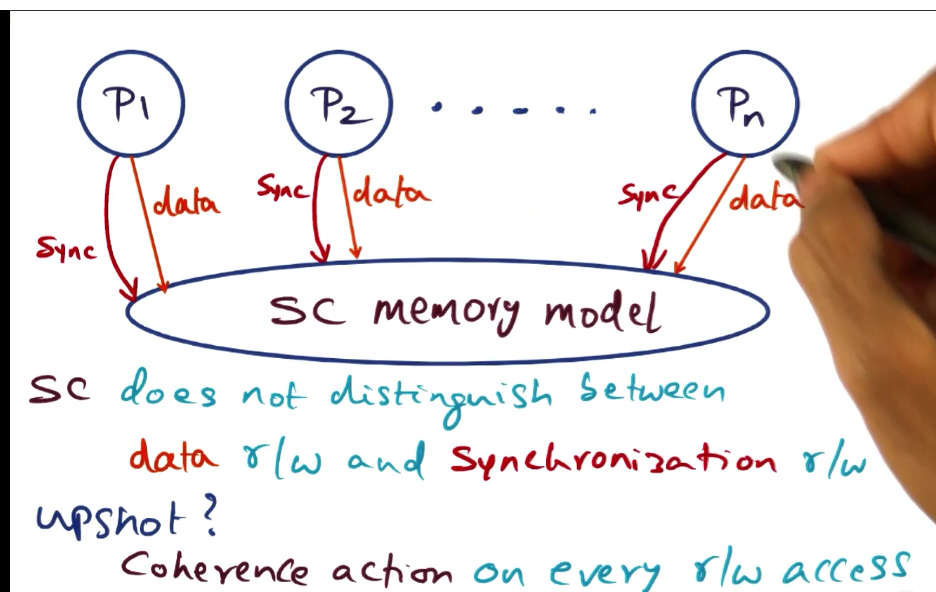 P1
P2
Pn
Sync
data
Sync
data
Sync
data
SC memory model
SC does not distinguish between
data r/w and Synchronization r/w
upshot?
Coherence action on every r/w access